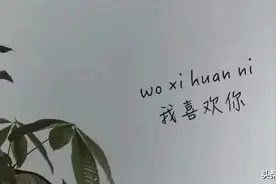 wo xi huan ni
我喜欢你
头条